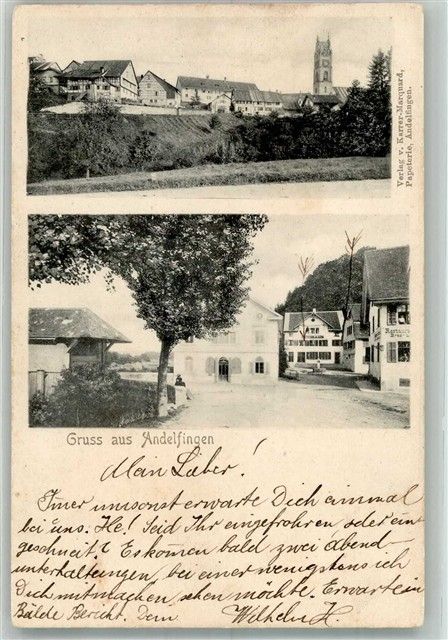 Verlag v. Karrer-Marquard,
Papeterie, Andelfingen.
Restaur
Gruss aus Andelfingen
Mein Lieber!
Imer umsonst erwarte Dich einmal
bei uns. He! Seid Ihr eingefrohren oder ein
geschneit? Es komen bald zwei Abend-
unterhaltungen, bei einer wenigstens ich
Dich mitmachen sehen möchte. Erwarte in
Bälde Bericht. Dein Wilhelm H.